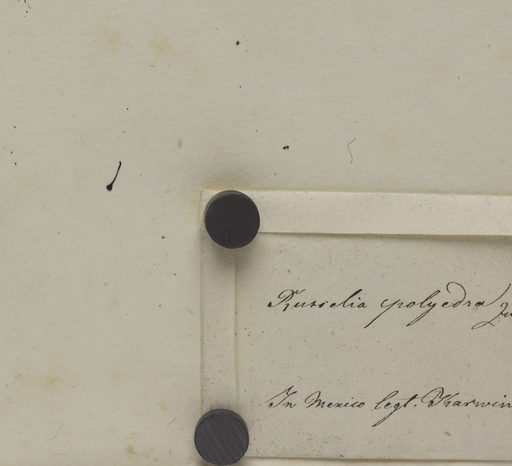 Russelia polyedra Zu
In Mexico legt. Karwin